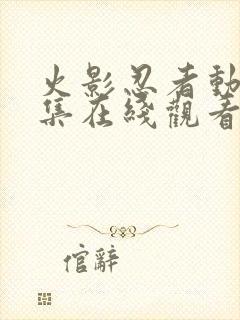 火影忍者動
集在綫觀看
倌辭